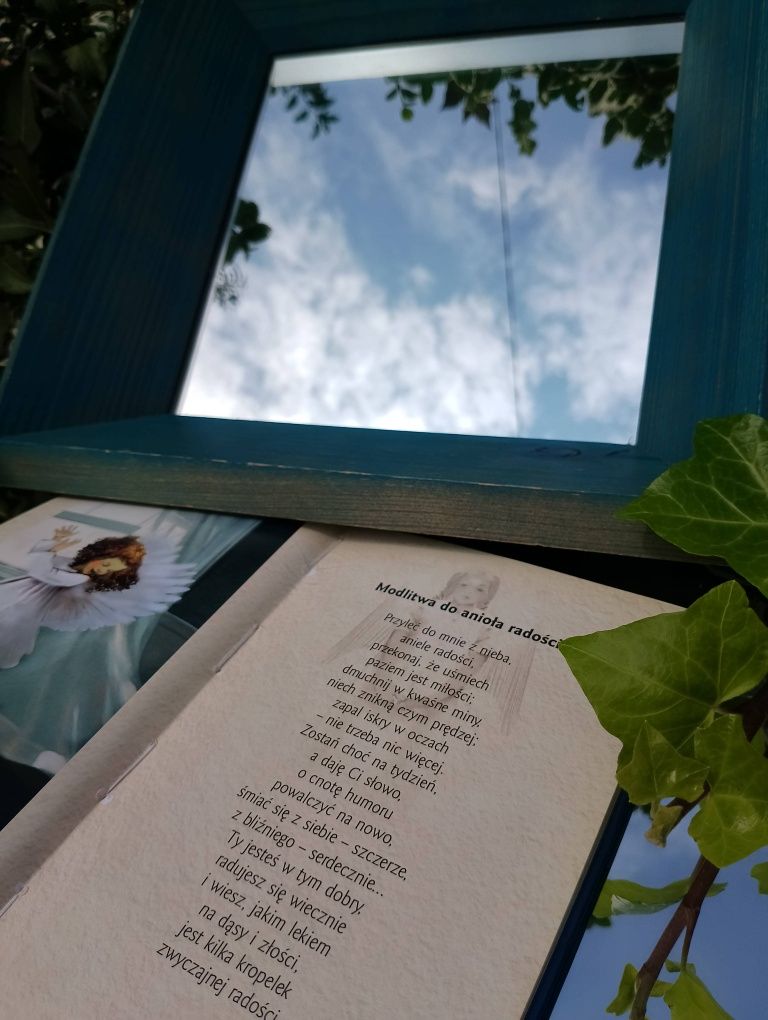 Modlitwa do anioła radości
Przyleć do mnie z nieba,
aniele radości,
przekonaj, że uśmiech
paziem jest miłości;
dmuchnij w kwaśne miny,
niech znikną czym prędzej;
zapal iskry w oczach
– nie trzeba nic więcej.
Zostań choć na tydzień,
a daję Ci słowo,
o cnotę humoru
powalczyć na nowo,
śmiać się z siebie – szczerze,
z bliźniego – serdecznie...
Ty jesteś w tym dobry,
radujesz się wiecznie
i wiesz, jakim lekiem
na dąsy i złości,
jest kilka kropelek
zwyczajnej radości